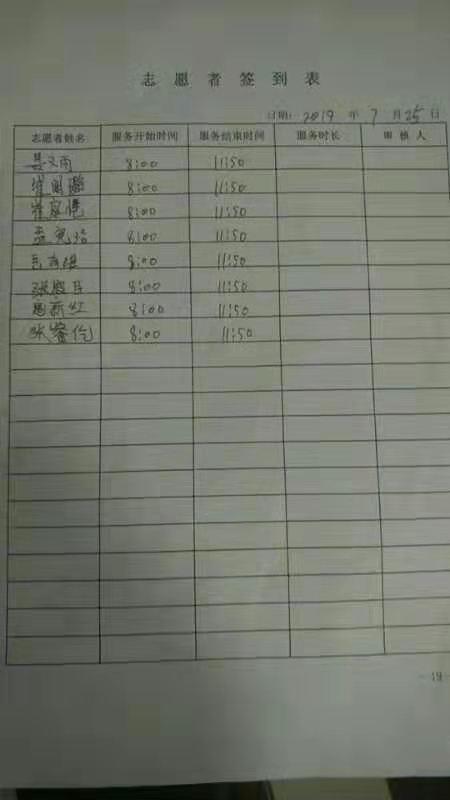 志愿者签到表
日期: 2019 年 7 月 25 日
志愿者姓名 服务开始时间 服务结束时间 服务时长 审核人
8:00 11:50
8:00 11:50
8:00 11:50
8:00 11:50
8:00 11:50
8:00 11:50
8:00 11:50
8:00 11:50
-19-